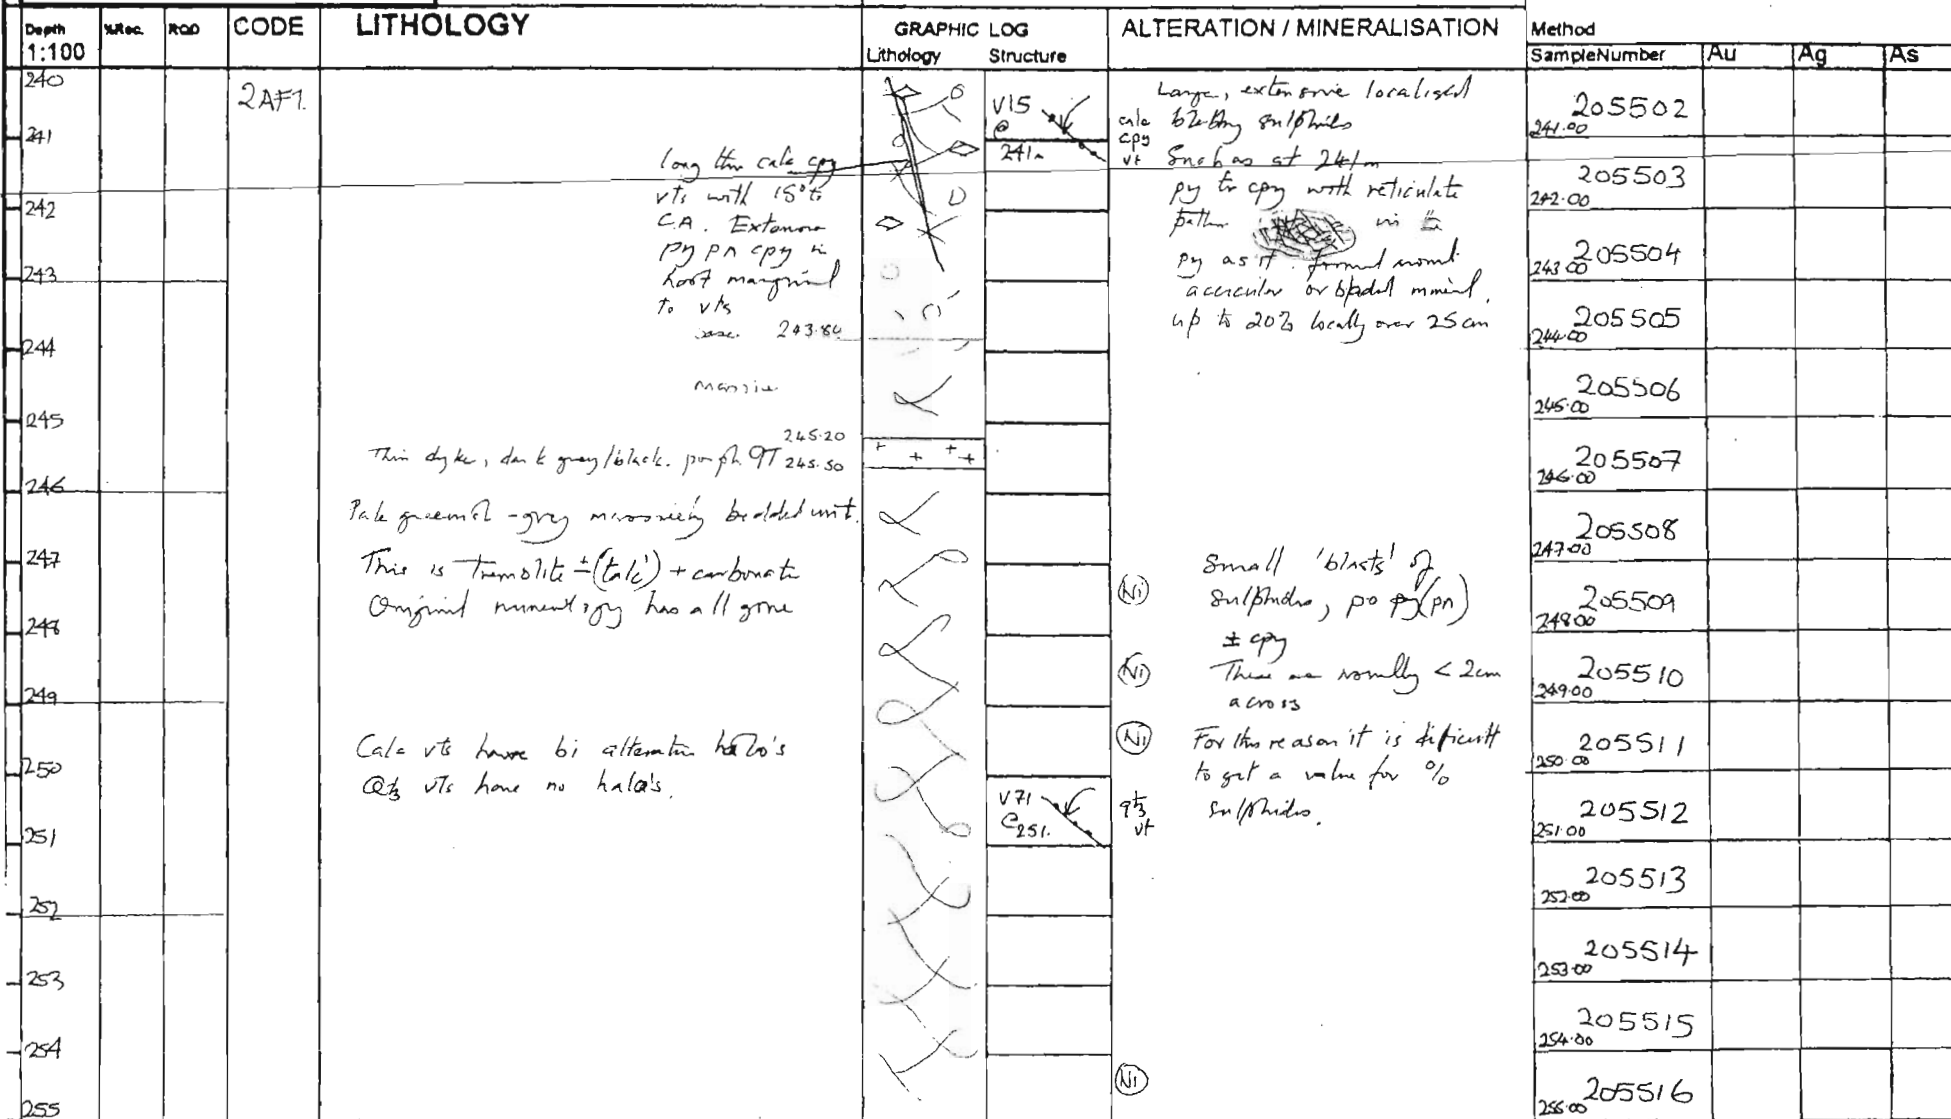 Depth %Rec. RQD CODE LITHOLOGY GRAPHIC LOG ALTERATION / MINERALISATION Method
1:100 Lithology Structure SampleNumber Au Ag As
240
2AF1.
241
242
243
244
245
246
247
248
249
250
251
252
253
254
255
long thin calc cpy
vts with 15° to
C.A. Extensive
py pn cpy in
host marginal
to vts
243.80
massive
245.20
Thin dyke, dark grey/black. porph 9T 245.50
Pale greenish-grey massively bedded unit.
This is Tremolite ± (talc) + carbonate
Original mineralogy has all gone
Calc vts have bi alteration halo's
Qtz vts have no halo's.
V15
@
241m
V71
@251.
Large, extensive localised
calc blebby sulphides
cpy
vt Such as at 241m
py to cpy with reticulate
pattern in the
py as it formed round
accicular or bladed mineral.
up to 20% locally over 25cm
Small 'blasts' of
Ni sulphides, po py(pn)
± cpy
Ni These are normally < 2cm
across
Ni For this reason it is dificult
to get a value for %
qtz sulphides.
vt
Ni
205502
241.00
205503
242.00
205504
243.00
205505
244.00
205506
245.00
205507
246.00
205508
247.00
205509
248.00
205510
249.00
205511
250.00
205512
251.00
205513
252.00
205514
253.00
205515
254.00
205516
255.00